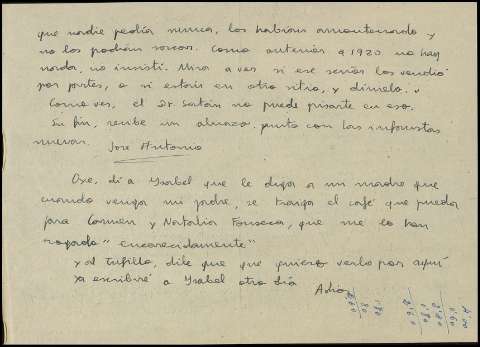 que nadie pedía nunca, los habían amontonado y
no los podían sacar. Como anterior a 1920 no hay
nada, no insistí. Mira a ver si ese señor los vendió
por partes, o si están en otro sitio, y dímelo.
Como ves, el Sr no puede pisarte en eso.
En fin, recibe un abrazo junto con los
nuevas. José Antonio
Oye, di a Ysabel que le diga a mi madre que
cuando venga mi padre, se traiga el café que pueda
para Carmen y Natalia Fonseca, que me lo han
rogado "encarecidamente"
y al Tufillo, dile que que quiero verlo por aquí
Ya escribiré a Ysabel otro día
Adiós